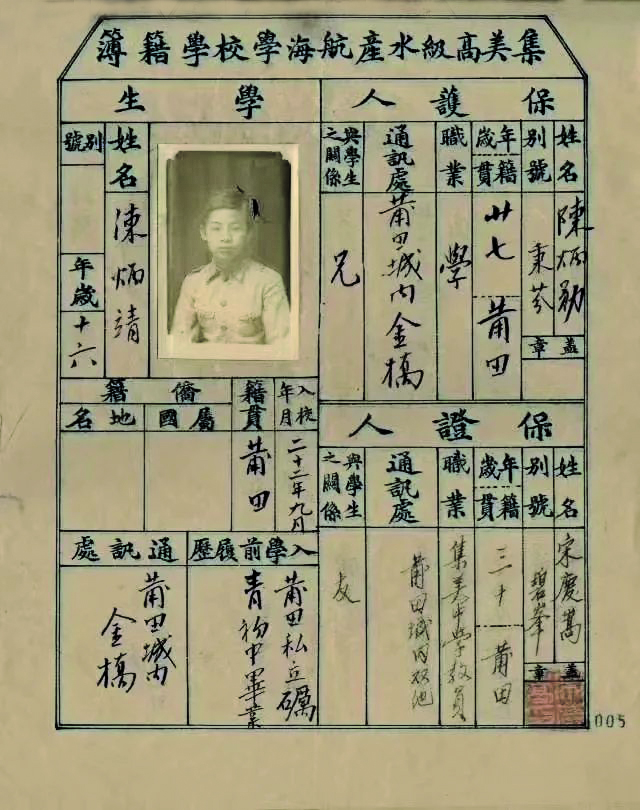 集美高級水產航海學校學籍簿
保護人
姓名
陳炳勛
別號
秉芬
蓋章
年歲
籍貫
廿七
莆田
職業
學
通訊處
莆田城內金橋
與學生之關係
兄
保證人
姓名
宋慶嵩
別號
碧峯
蓋章
年歲
籍貫
三十
莆田
職業
集美中學教員
通訊處
莆田城内双池
與學生之關係
友
學生
姓名
陳炳靖
別號
年歲
十六
入校年月
二十二年九月
籍貫
莆田
僑籍
屬國
地名
入學前履歷
莆田私立礪
青初中畢業
通訊處
莆田城內
金橋
005